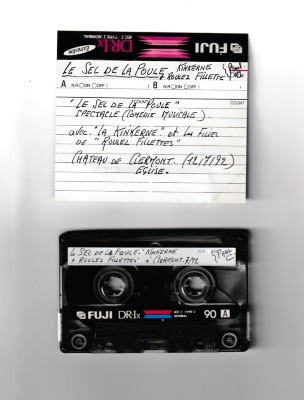 Extraslim
DR-Ix
IEC I TYPE I NORMAL
FUJI
LE SEL DE LA POULE KINKERNE
+ ROULEZ FILLETTE
A N.R. □ON □OFF B N.R. □ON □OFF
COUNT COUNT
"LE SEL DE LA POULE"
SPECTACLE (COMÉDIE MUSICALE).
avec "LA KINKERNE" et les filles
de "ROULEZ FILLETTES"
CHÂTEAU DE CLERMONT. (12/7/92)
EGLISE.
LE SEL DE LA POULE. KINKERNE
+ ROULEZ FILLETTES à CLERMONT. 7/92
FUJI DR-Ix IEC I TYPE I NORMAL 90 A